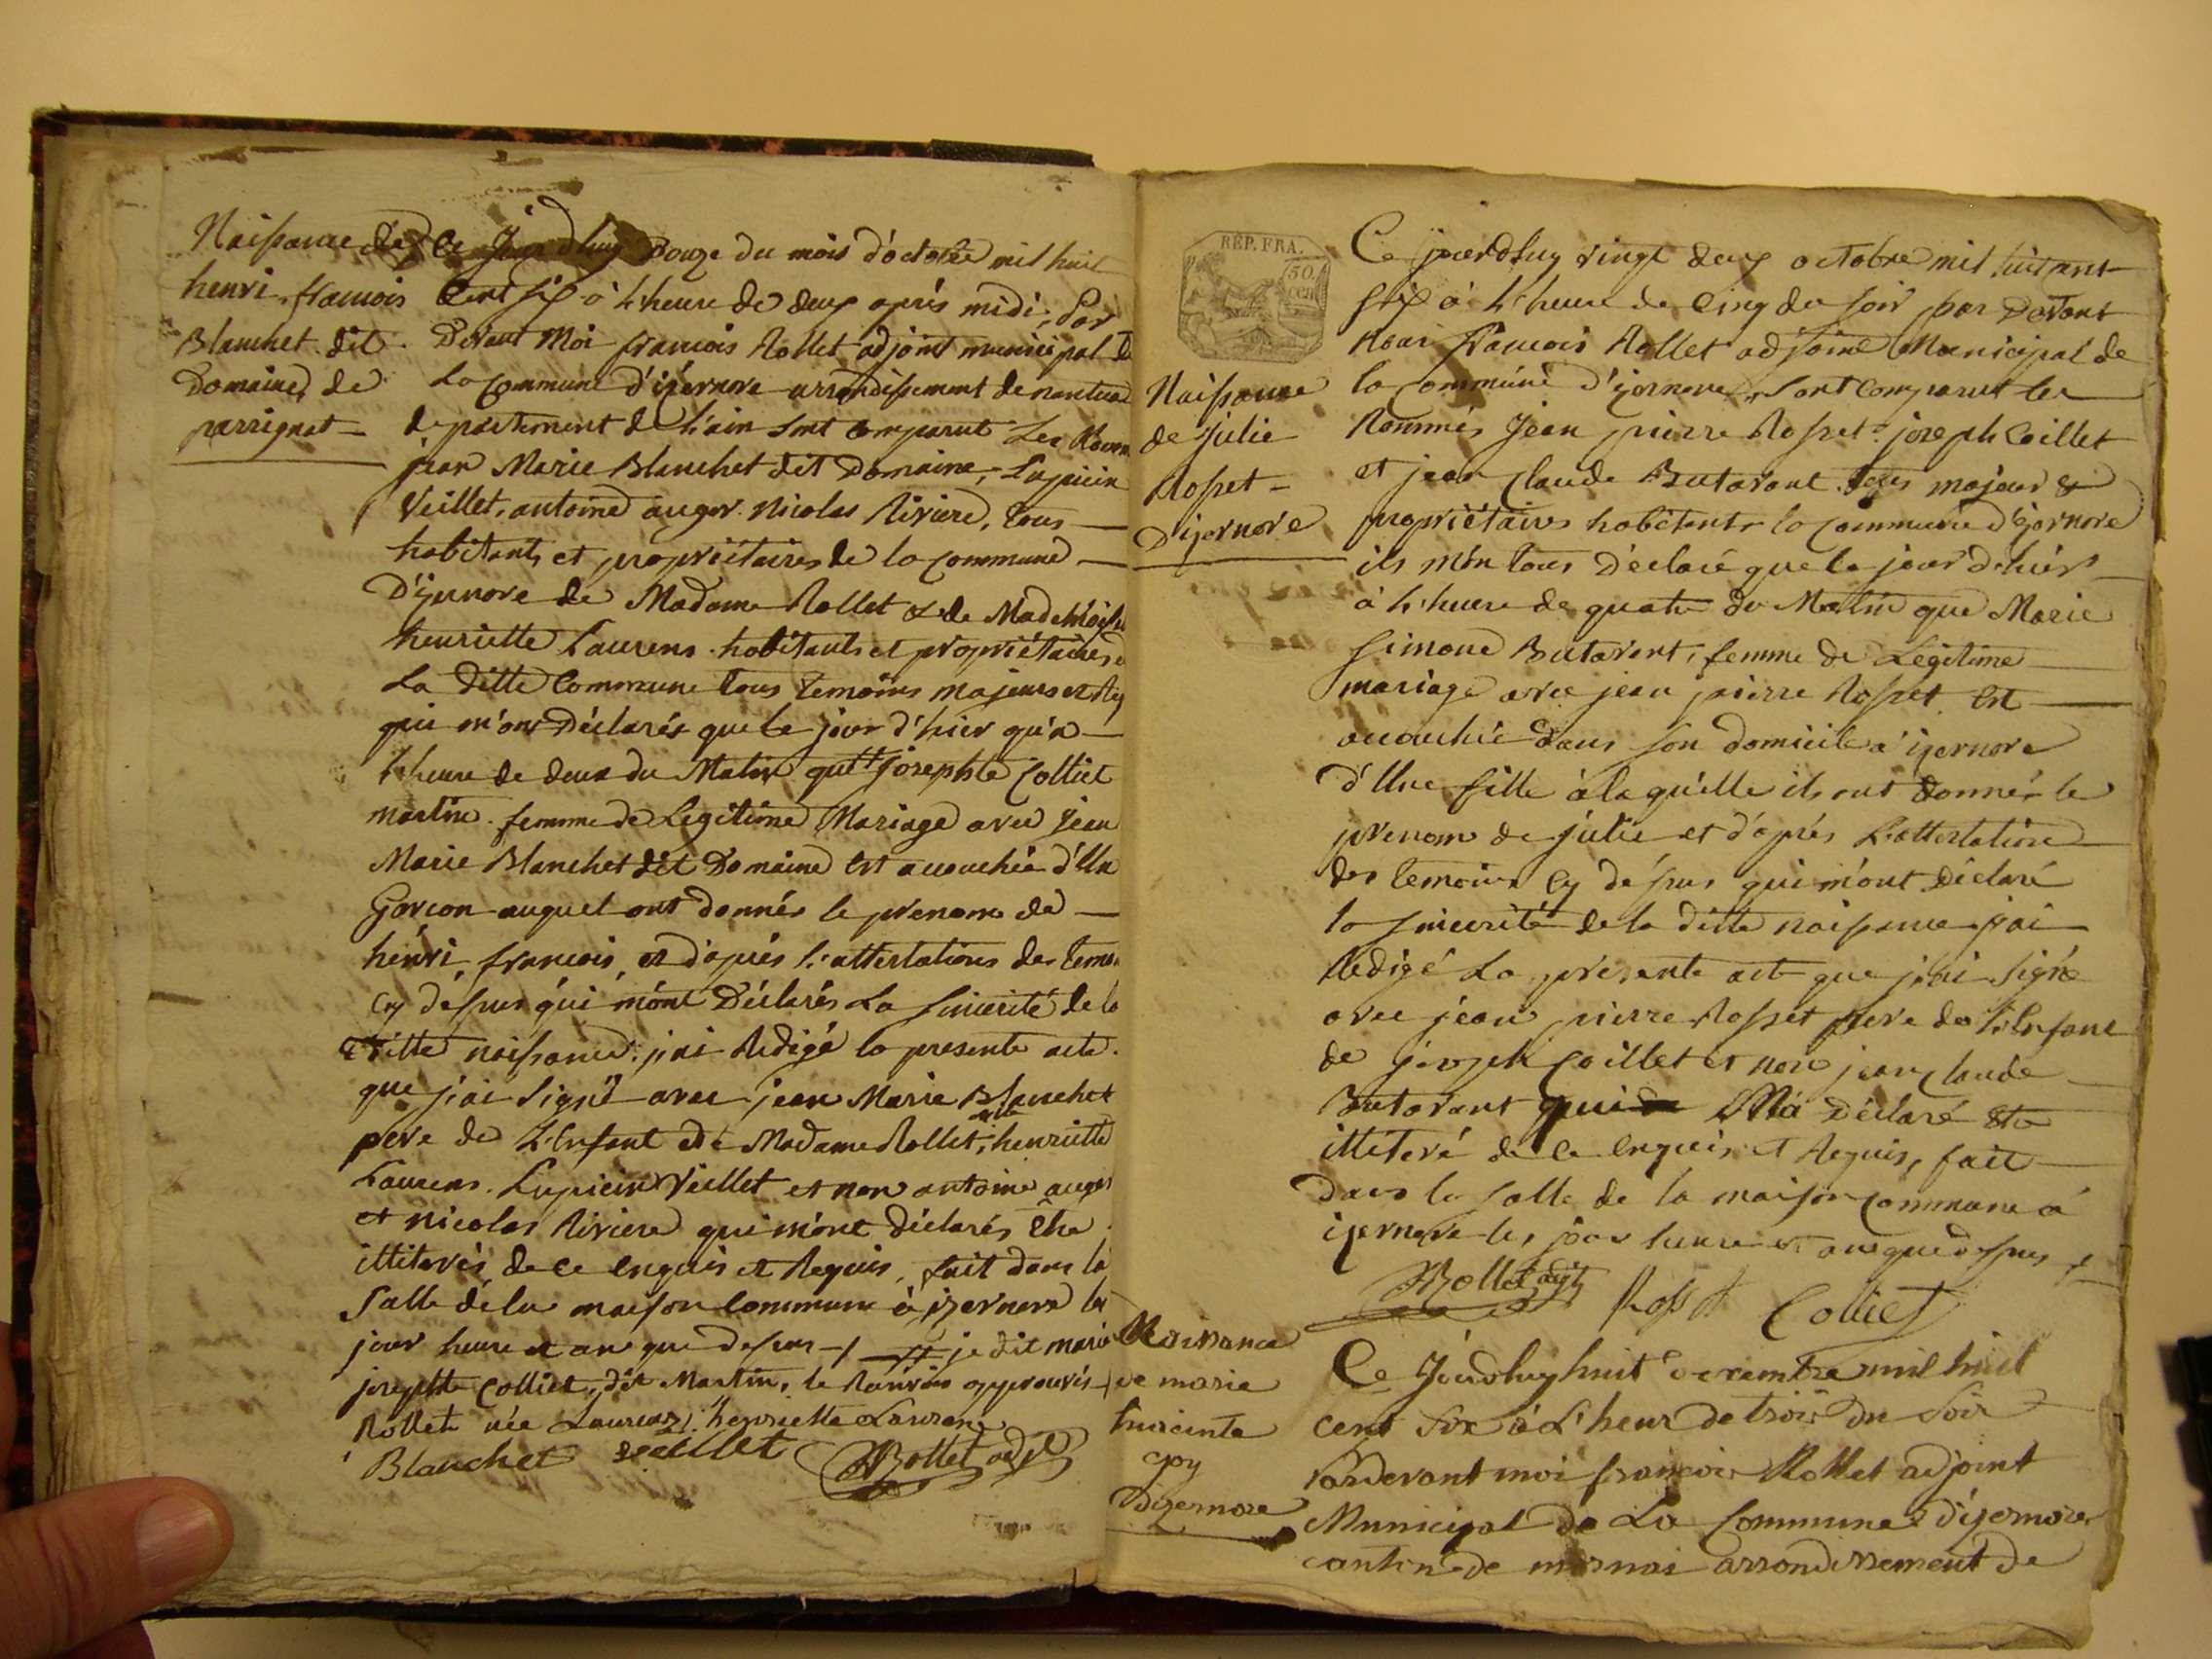 Naissance de
henri françois
Blanchet dit
Domaine de
perrignat
Ce Jourdhuy Douze du mois d'octobre mil huit
Cent Six à l'heure de deux après midi, Par
Devant Moi françois Rollet adjoint municipal de
La Commune d'izernore arrondissement de nantua
departement de l'ain sont comparut Les
jean Marie Blanchet dit Domaine, Lupicin
Veillet, antoine auger Nicolas Riviere, tous
habitants et proprietaires de la commune
D'izernore de Madame Rollet & de
henriette Laurens habitants et propriétaires
La ditte Commune tous temoins majeurs
qui m'ont Déclarés que le jour d'hier qu'a
l'heure de deux du Matin josephte Colliet
martin femme de Legitime Mariage avec jean
Marie Blanchet dit Domaine Est accouchée d'Un
Garcon auquel ont donnés le prenom de
henri, francois, et d'après l'attestations des
Cy dessus qui m'ont Déclarés La sincerité de la
ditte naissance, j'ai Rédigé la presente acte
que j'ai Signé avec jean Marie Blanchet
pere de L'Enfant de Madame Rollet, henriette
Laurens Lupicin Veillet et non antoine auger
et nicolas Riviere qui m'ont déclarés Etre
illiterés de ce Enquis et Requis, fait dans la
Salle de la maison Commune à izernore les
jour heure et an que dessus je dit marie
josephte Colliet, dit Martin, le approuvés
Rollet née Laurens, henriette Laurens
Blanchet veillet Rollet adjt
REP. FRA.
50
CEN
Naissance
de julie
Rosset
D'izernore
Ce jourdhuy vingt deux octobre mil huit cent
Six à l'heure de Cinq du soir par Devant
Nous François Rollet adjoint Municipal de
la Commune d'izernore, sont comparut les
Nommés Jean pierre Rosset, joseph Coillet
et jean Claude Butavant tous majeur &
propriétaires habitants la commune d'izernore
ils m'on tous Déclaré que le jour d'hier
à l'heure de quatre du Matin que Marie
Simone Butavant, femme de Legitime
mariage avec jean pierre Rosset Est
accouchée dans son domicile à izernore
d'Une fille à laquelle ils ont donnés le
prenom de julie et d'après L'attestation
des temoins Cy dessus qui m'ont Déclaré
la sincerité de la ditte naissance j'ai
Redigé La presente acte que j'ai Signé
avec jean pierre Rosset pere de L'Enfant
de joseph Coillet et non jean Claude
Butavant qui M'a Déclaré Etre
illiteré de ce Enquis et Requis, fait
dans la salle de la maison commune à
izernore les jour heure et an que dessus
Rollet adjt Rosset Colliet
Naissance
de marie
hiacinte
goy
Dizernore
Ce Jourdhuy huit decembre mil huit
cent six à L'heur de trois du Soir
Pardevant moi françois Rollet adjoint
Municipal de La Commune d'izernore
canton de mornai arrondissement de